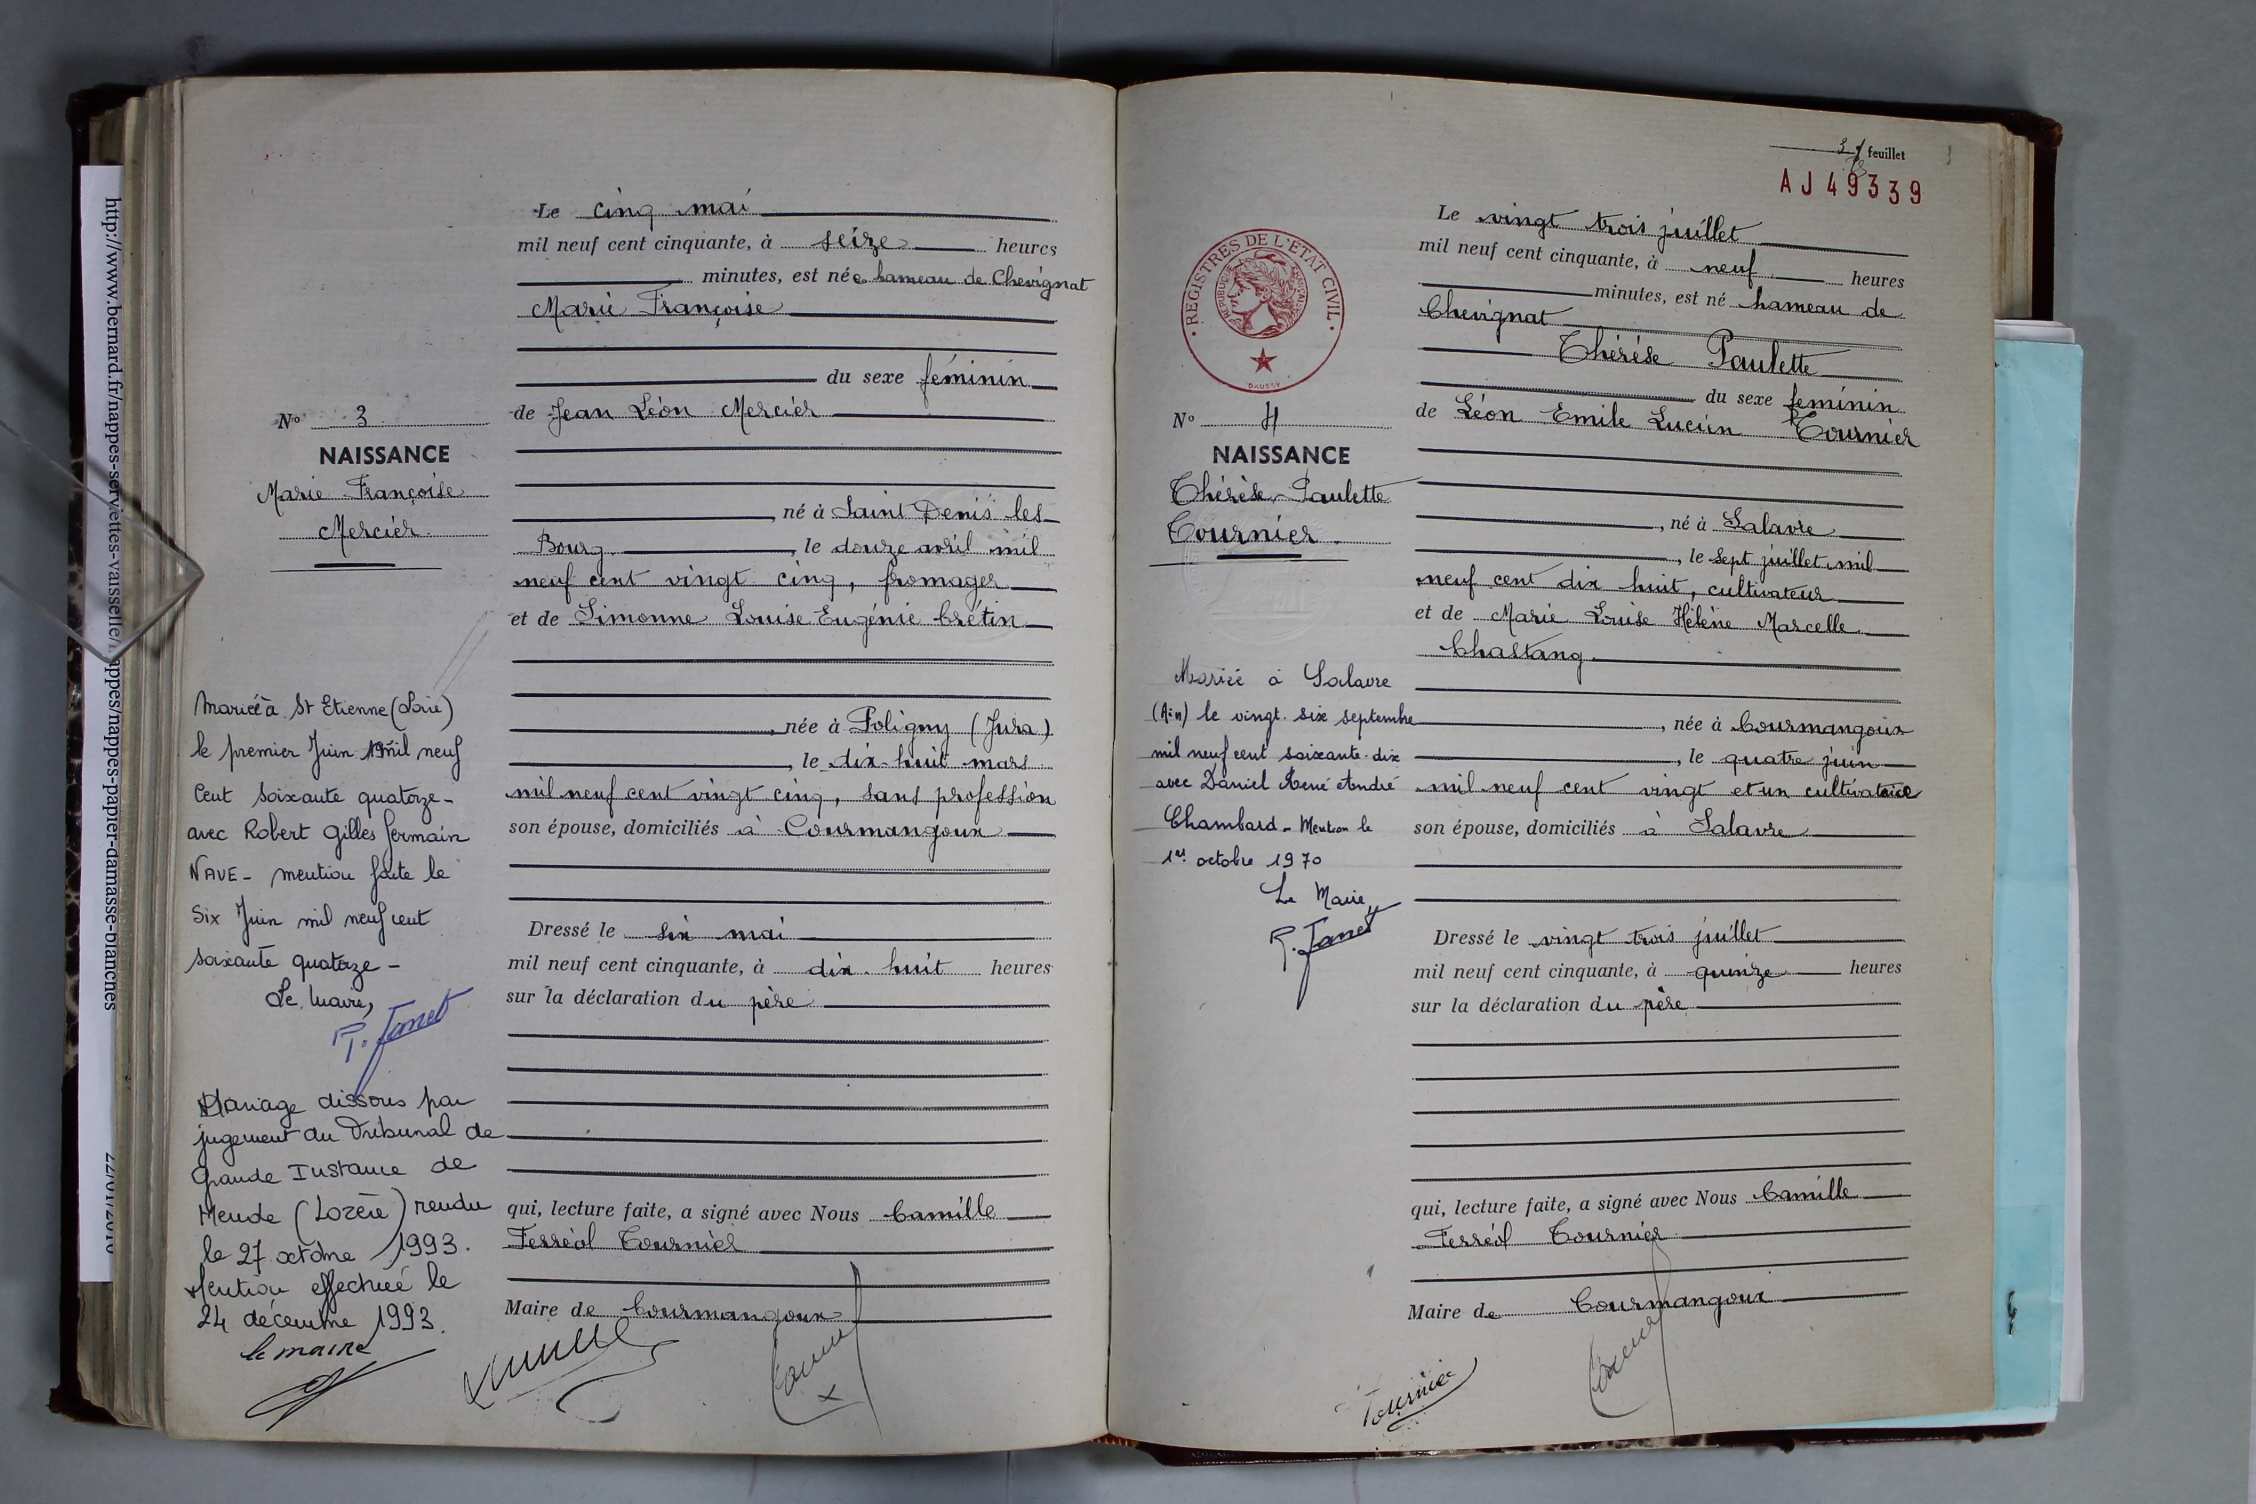 http://www.bernard.fr/nappes-serviettes-vaisselle/nappes/nappes-papier-damasse-blanches
Le cinq mai
mil neuf cent cinquante, à seize heures
minutes, est née hameau de Chevignat
Marie Françoise
du sexe féminin
de Jean Léon Mercier
né à Saint Denis les
Bourg, le douze avril mil
neuf cent vingt cinq, fromager
et de Simonne Louise Eugénie Crétin
, née à Poligny (Jura)
, le dix-huit mars
mil neuf cent vingt cinq, sans profession
son épouse, domiciliés à Courmangoux
Dressé le six mai
mil neuf cent cinquante, à dix-huit heures
sur la déclaration du père
qui, lecture faite, a signé avec Nous Camille
Ferréol Tournier
Maire de Courmangoux
No 3
NAISSANCE
Marie Françoise
Mercier
Mariée à St Etienne (Loire)
le premier Juin mil neuf
Cent Soixante quatorze -
avec Robert Gilles Germain
NAVE - mention faite le
Six Juin mil neuf cent
soixante quatorze -
Le Maire,
R. Janet
Mariage dissous par
jugement du Tribunal de
Grande Instance de
Mende (Lozère) rendu
le 27 octobre 1993.
Mention effectuée le
24 décembre 1993.
le maire
feuillet
AJ 49339
REGISTRES DE L'ETAT CIVIL
DAUSSY
Le vingt trois juillet
mil neuf cent cinquante, à neuf heures
minutes, est né hameau de
Chevignat
Thérèse Paulette
du sexe féminin
de Léon Emile Lucien Tournier
, né à Salavre
, le sept juillet mil
neuf cent dix huit, cultivateur
et de Marie Louise Hélène Marcelle
Chastang
, née à Courmangoux
, le quatre juin
mil neuf cent vingt et un cultivatrice
son épouse, domiciliés à Salavre
Dressé le vingt trois juillet
mil neuf cent cinquante, à quinze heures
sur la déclaration du père
qui, lecture faite, a signé avec Nous Camille
Ferréol Tournier
Maire de Courmangoux
Tournier
No 4
NAISSANCE
Thérèse Paulette
Tournier
Mariée à Salavre
(Ain) le vingt-six septembre
mil neuf cent soixante-dix
avec Daniel René André
Chambard - Mention le
1er octobre 1970
Le Maire,
R. Janet